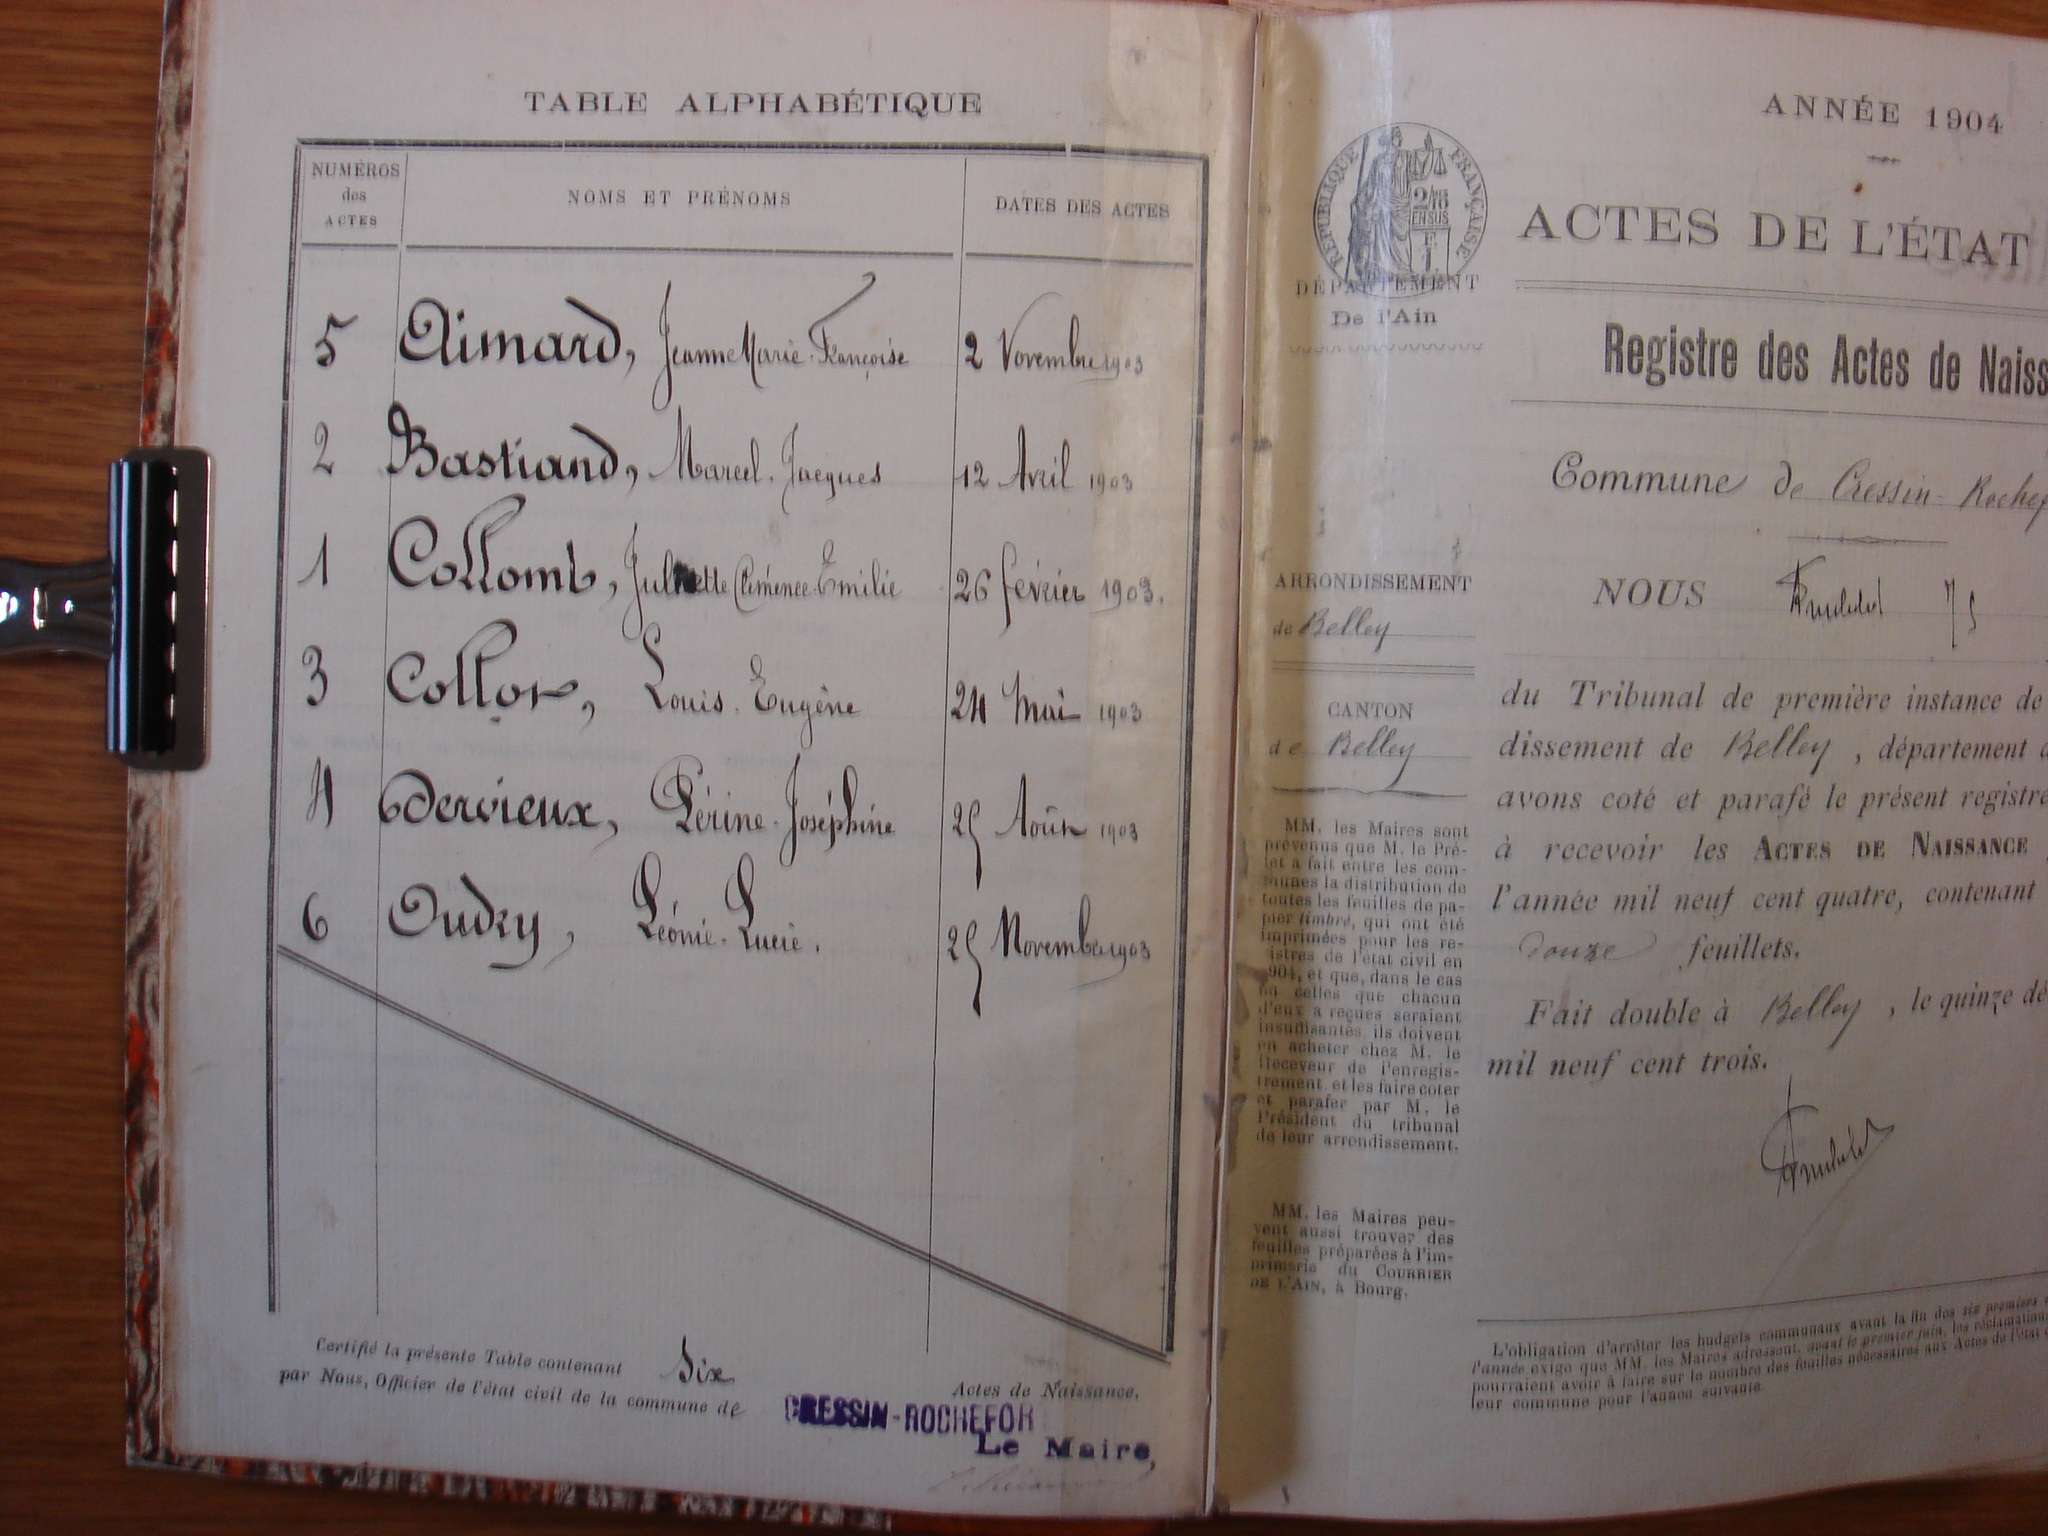 TABLE ALPHABÉTIQUE
NUMÉROS
des
ACTES
NOMS ET PRÉNOMS
DATES DES ACTES
5 Aimard, Jeanne Marie Françoise 2 Novembre 1903
2 Bastiand, Marcel Jacques 12 Avril 1903
1 Collomb, Juliette Clémence Emilie 26 février 1903.
3 Collot, Louis Eugène 24 Mai 1903
4 Dervieux, Périne Joséphine 25 Août 1903
6 Oudry, Léonie Lucie. 25 Novembre 1903
Certifié la présente Table contenant Six Actes de Naissance,
par Nous, Officier de l'état civil de la commune de CRESSIN-ROCHEFOR
Le Maire,
ANNÉE 1904
RÉPUBLIQUE FRANÇAISE
2/10
EN SUS
ACTES DE L'ÉTAT
DÉPARTEMENT
De l'Ain
Registre des Actes de Naiss
Commune de Cressin-Rochef
ARRONDISSEMENT
de Belley
NOUS
CANTON
de Belley
du Tribunal de première instance de
dissement de Belley, département d
avons coté et parafé le présent registre
à recevoir les ACTES DE NAISSANCE
l'année mil neuf cent quatre, contenant
douze feuillets.
Fait double à Belley, le quinze dé
mil neuf cent trois.
MM. les Maires sont
prévenus que M. le Pré-
fet a fait entre les com-
munes la distribution de
toutes les feuilles de pa-
pier timbré, qui ont été
imprimées pour les re-
istres de l'état civil en
904, et que, dans le cas
où celles que chacun
d'eux a reçues seraient
insuffisantes, ils doivent
en acheter chez M. le
Receveur de l'enregis-
trement et les faire coter
et parafer par M. le
Président du tribunal
de leur arrondissement.
MM. les Maires peu-
vent aussi trouver des
feuilles préparées à l'im-
primerie du COURRIER
DE L'AIN, à Bourg.
L'obligation d'arrêter les budgets communaux avant la fin des six premiers
l'année exige que MM. les Maires adressent, avant le premier juin, les réclamations
pourraient avoir à faire sur le nombre des feuilles nécessaires aux Actes de l'état
leur commune pour l'année suivante